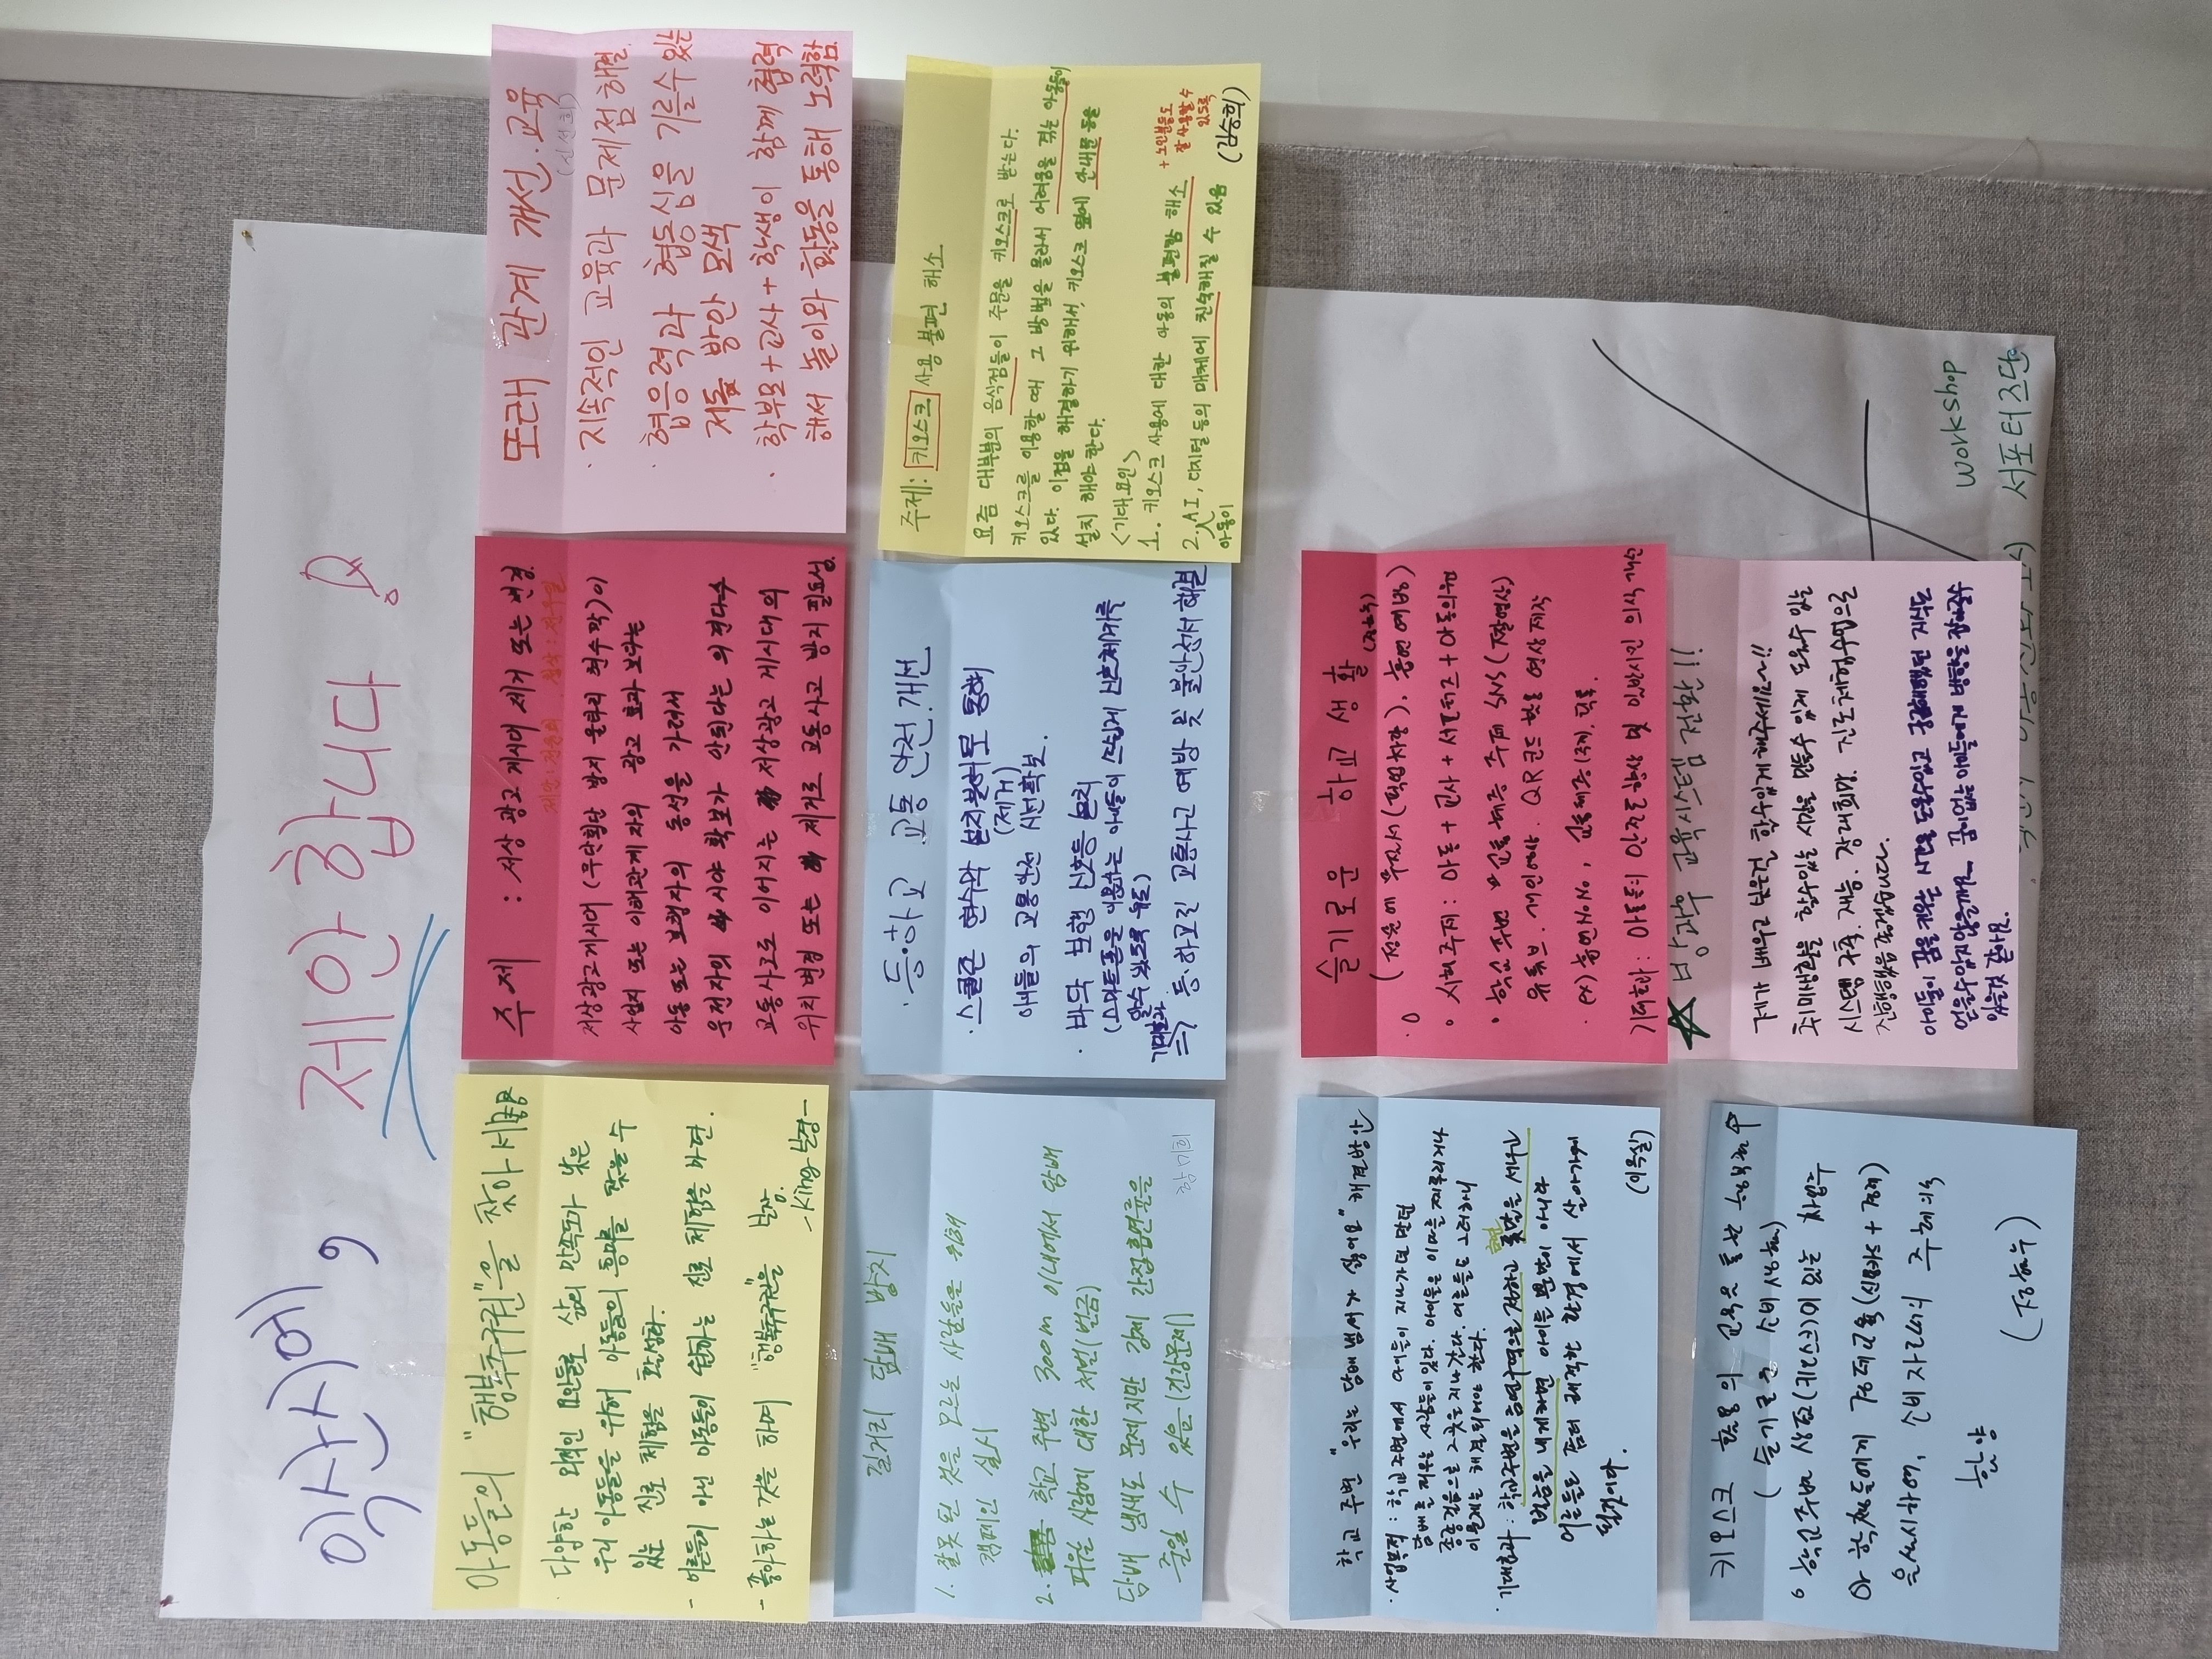 익산시에,
제안합니다!
아동들의 "행복추구권"을 찾아서
다양한 외폐인 요인들로 삶의 만족도가 낮은
우리 아동들을 위해 아동들의 흥미를 찾을 수
있는 진로 체험을 활성화.
- 어른들이 아닌 아동들이 원하는 진로 체험을 하면.
- 좋아하는 것을 하며 "행복추구권"을 보장.
주제 : 지상 광고 게시대 제거 또는 변경.
지상광고게시대(무단횡단 방지 울타리 현수막)이
사업자 또는 이해관계자의 광고 효과 보다는
아동 또는 보행자의 동선을 가려서
운전자의 시야 확보가 안된다는 의견다수
교통사고로 이어지는 지상광고 게시대의
위치변경 또는 제거로 교통사고 방지 필요성.
또래 관계 개선·교육
· 지속적인 교육과 문제점 해결
· 협응력과 협동심을 기를수 있는
제출 방안 모색
· 학부모+교사+학생이 함께 협력
해서 놀이와 활동을 통해 노력함.
길거리 담배 방지
1. 잘못된 것을 모르는 사람들을 위해
캠페인 실시
2. 학교 주변 300m 이내에서 담배
피우는 사람에 대한 처벌(벌금)
담배 냄새도 문제지만 강제 간접흡연율을
줄일 수 있음(건강문제)
· 등하교 교통 안전.개선
· 스쿨존 현수막 설치불허로 통해
(제거)
아이들의 교통안전 시선확보.
· 바닥 보행 신호등 설치
(스마트폰을 이용하는 아이들이 쉽게 신호체계를
알수 있도록 유도)
기대효과
=> 등·하교길 교통사고 예방 및 불안정서 해결
주제: 키오스크 사용 불편 해소
요즘 대부분의 음식점들이 주문을 키오스크로 받는다.
키오스크를 이용할 때 그 방법을 몰라서 어려움을 겪는 아동들이
있다. 이점을 해결하기 위해서, 키오스크 옆에 안내문 등을
설치 해야 한다.
<기대요인>
1. 키오스크 사용에 대한 아동의 불편함 해소
+ 노인분들도
잘 사용할 수
있도록
2. AI, 디지털 등의 매체에 친숙해질 수 있음
아동이
(김승희)
학교 주변 "우리는 담배냄새가 싫어요" 해결방안
· 사업목적 : 학교주변에서 아이들이 지나가던 말던
담배를 피우는 사람들이 있다. 아이들은 이마를 찌푸리거나
종종걸음으로 그곳을 지나간다. 어른들도 그러하니
이문제는 해결되어야 한다.
· 기대효과 : 학교주변은 금연구역으로 정하고 푯말을 세우는
법을 내게되면 아이들 뿐만이 아니라
어른들도 좀더 쾌적한 환경에서 살아가게
될것이다.
(이옥실)
슬기로운 학교 생활
· 시행주체 : 아동 + 교사 + 서포터즈 + 아동의원
유튜브. 개인영상. QR코드 활용 영상제작
기대효과 : 아동들의 만족도향상 및 일반시민 의식 개선
키오스크 활용의 교육을 통한 행복권 수
(슬기로운 소비생활)
· 학교주변 상점(키오스크)이 있는 사업주
와 학생들에게 경제교육(신용카드+경제)
을 실시하여, 소비자로서의 주체의식
함양
★ 방과후 교육시스템 전환!!
내가 배우고 싶은걸 할수있게 해주세요~!!
취미생활을 할수있는 시간을 만들수 있게 도울수 있는
시스템 구축. 재능. 장래희망. 진로체험수업으로
진행했으면 좋겠습니다.
workshop
서포터즈단